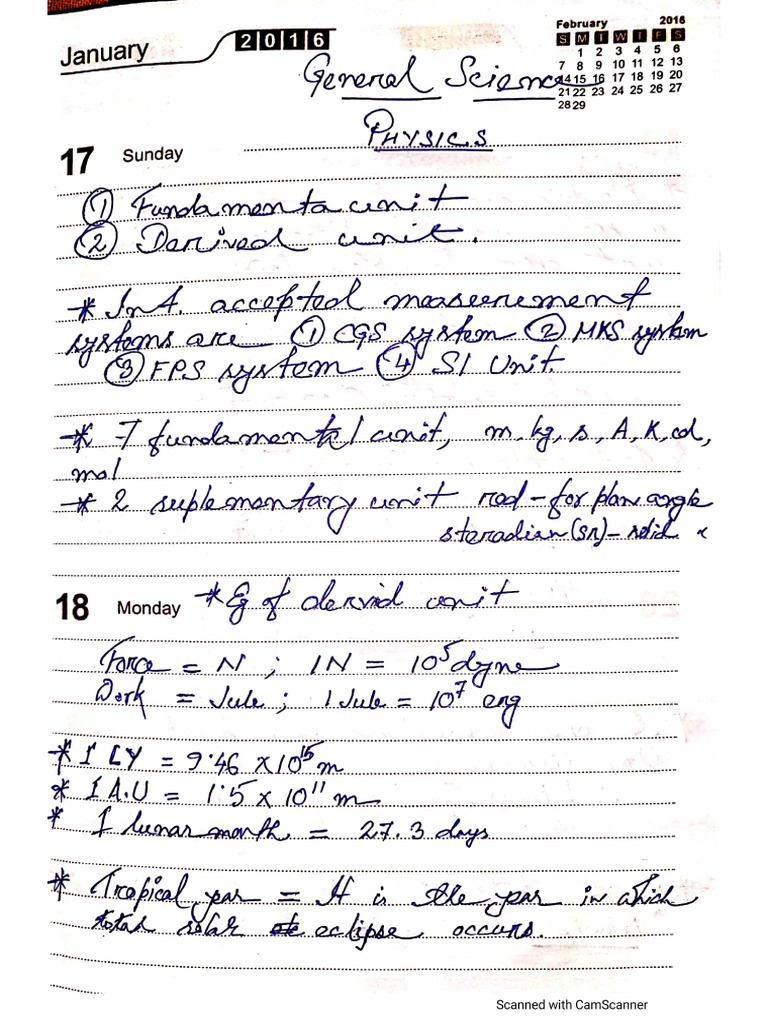 January
2016
February 2016
S M T W T F S
1 2 3 4 5 6
7 8 9 10 11 12 13
14 15 16 17 18 19 20
21 22 23 24 25 26 27
28 29
General Science
PHYSICS
17 Sunday
① Fundamenta unit
② Derived unit.
* In 4 accepted measurement
systems are ① CGS system ② MKS system
③ FPS system ④ SI Unit.
* 7 fundamental unit, m, kg, s, A, K, cd,
mol
* 2 suplementary unit rad - for plan angle
steradian (sr) - solid
18 Monday * Eg of dervid unit
Force = N ; 1N = 10⁵ dyne
Work = Jule ; 1 Jule = 10⁷ erg
* 1 LY = 9.46 x 10¹⁵ m
* 1 A.U = 1.5 x 10¹¹ m
* 1 lunar month = 27.3 days
* Tropical year = It is the year in which
total solar eclipse occurs.
Scanned with CamScanner